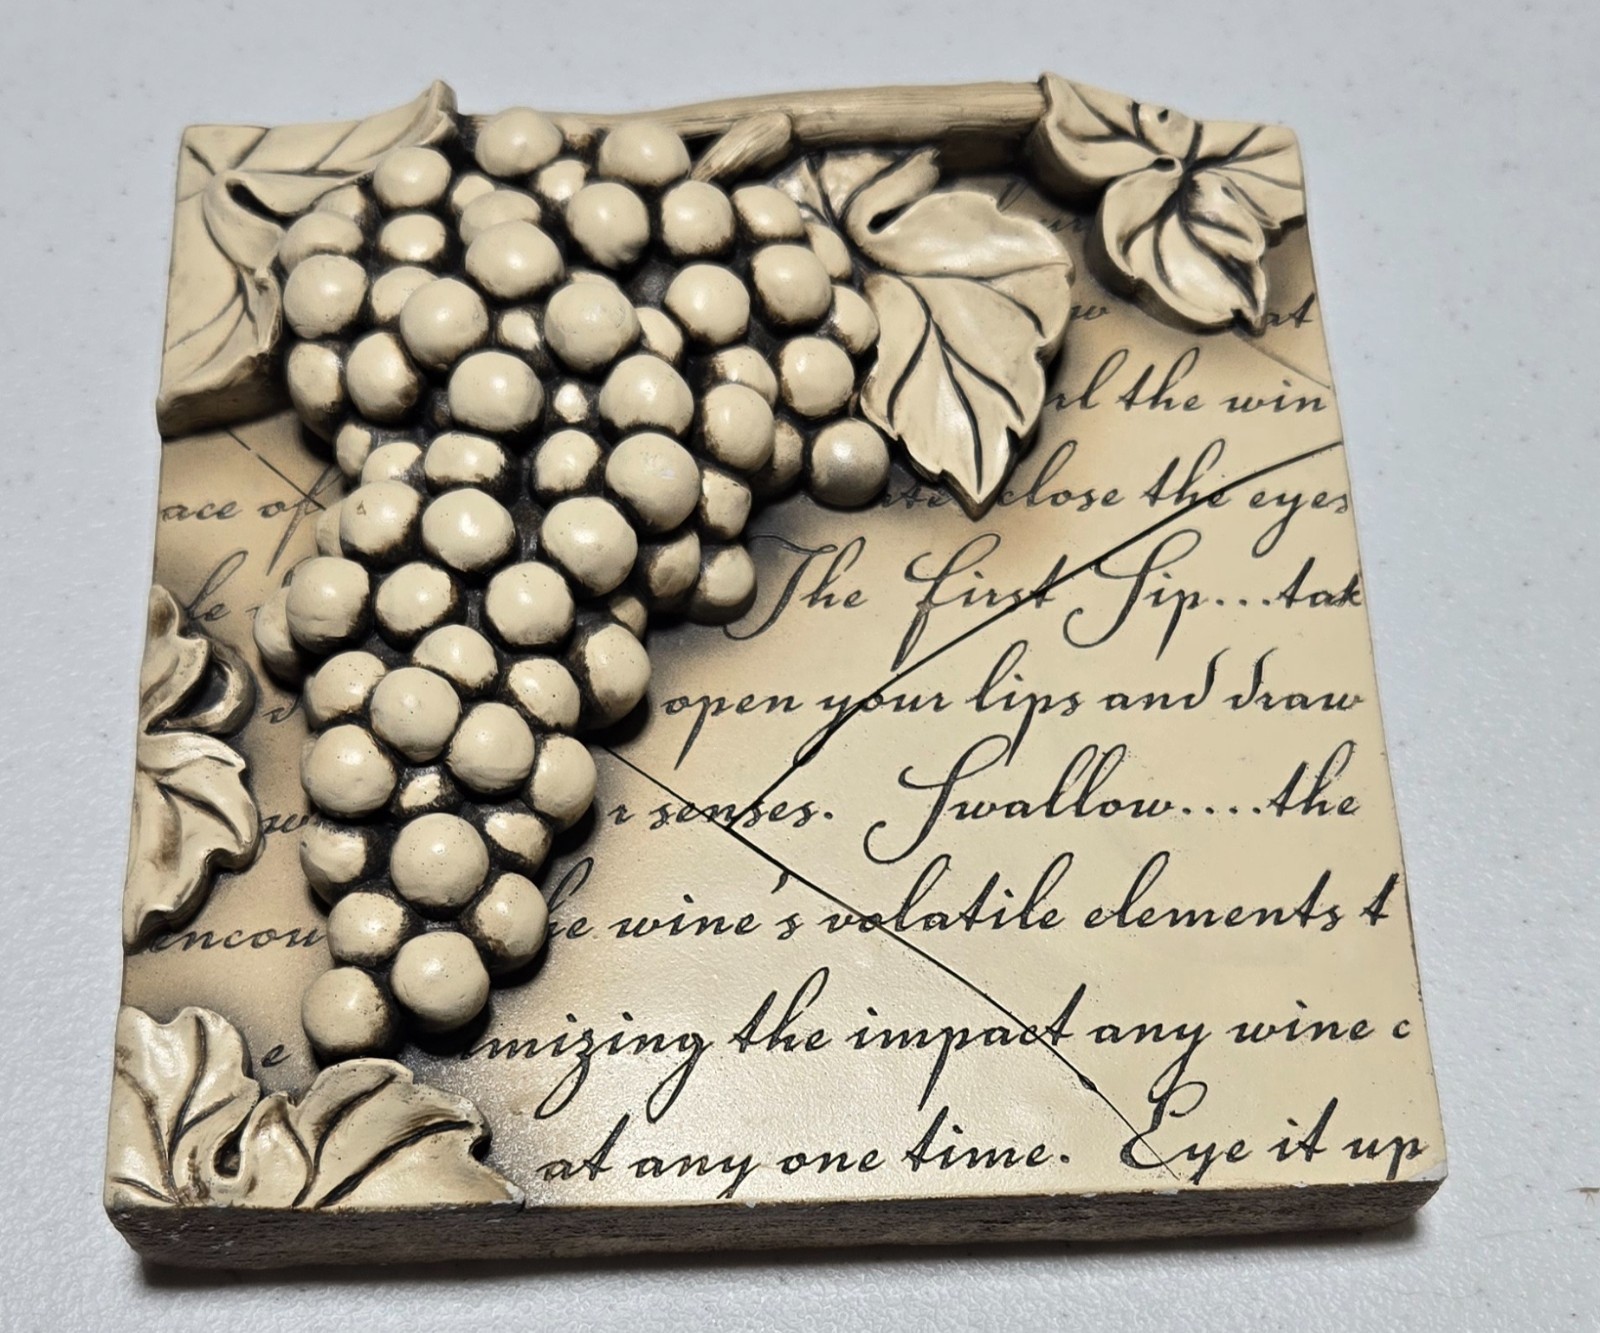 at
the win
ace of close the eyes
The first Sip...tak
open your lips and draw
senses. Swallow....the
wine's volatile elements t
encou
mizing the impact any wine c
e
at any one time. Eye it up